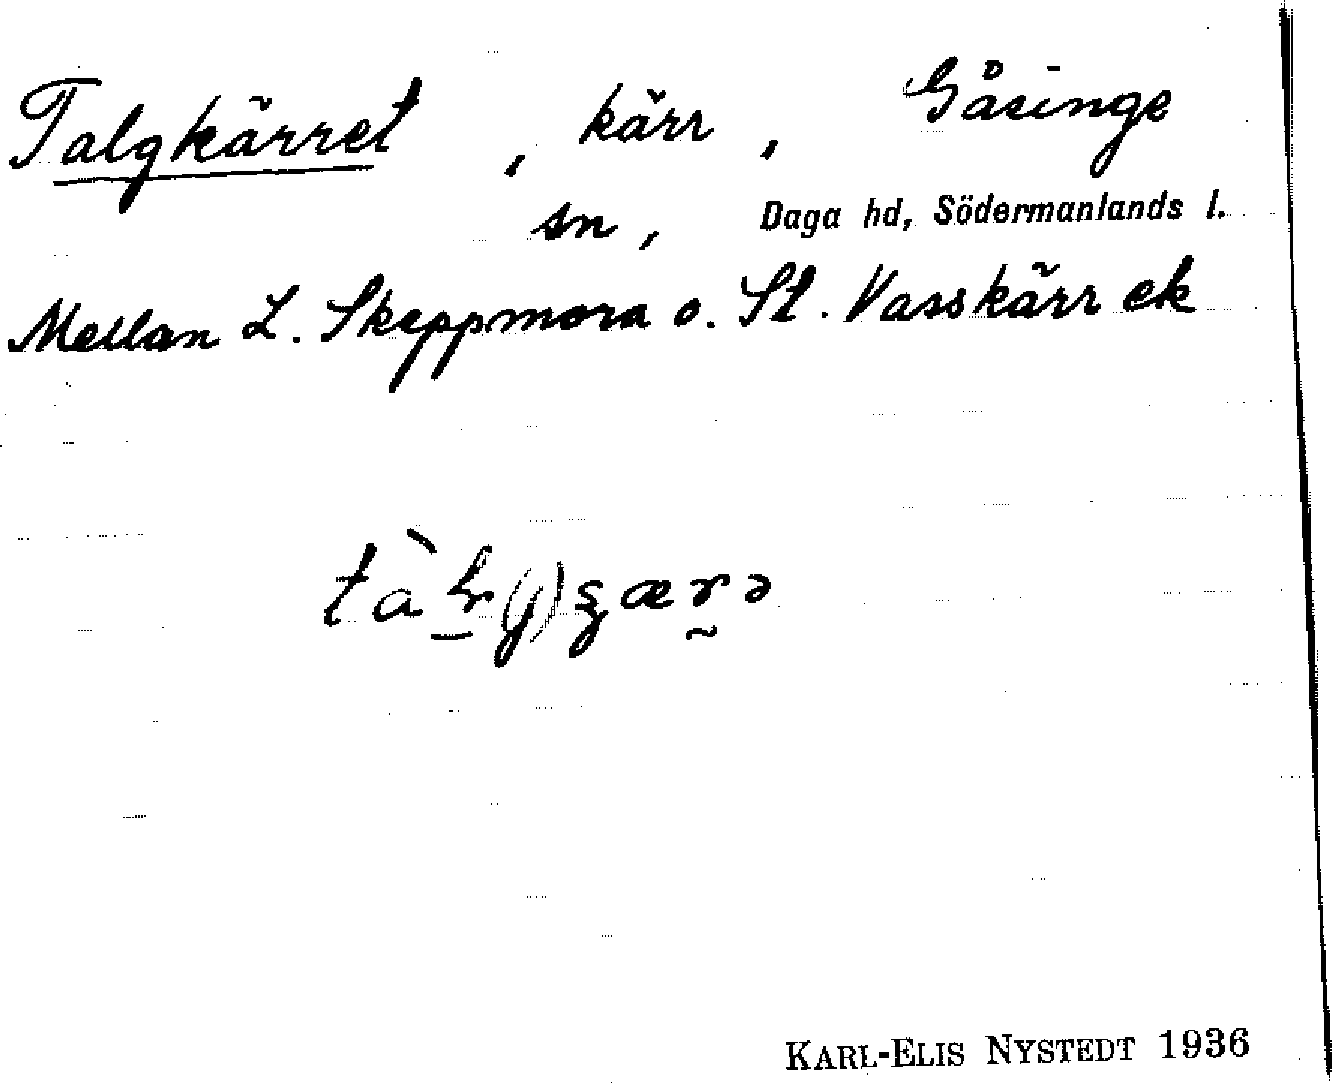 Talgkärret, kärr, Gåsinge
sn, Daga hd, Södermanlands l.
Mellan L. Skeppmora o. St. Vasskärr ek
KARL-ELIS NYSTEDT 1936